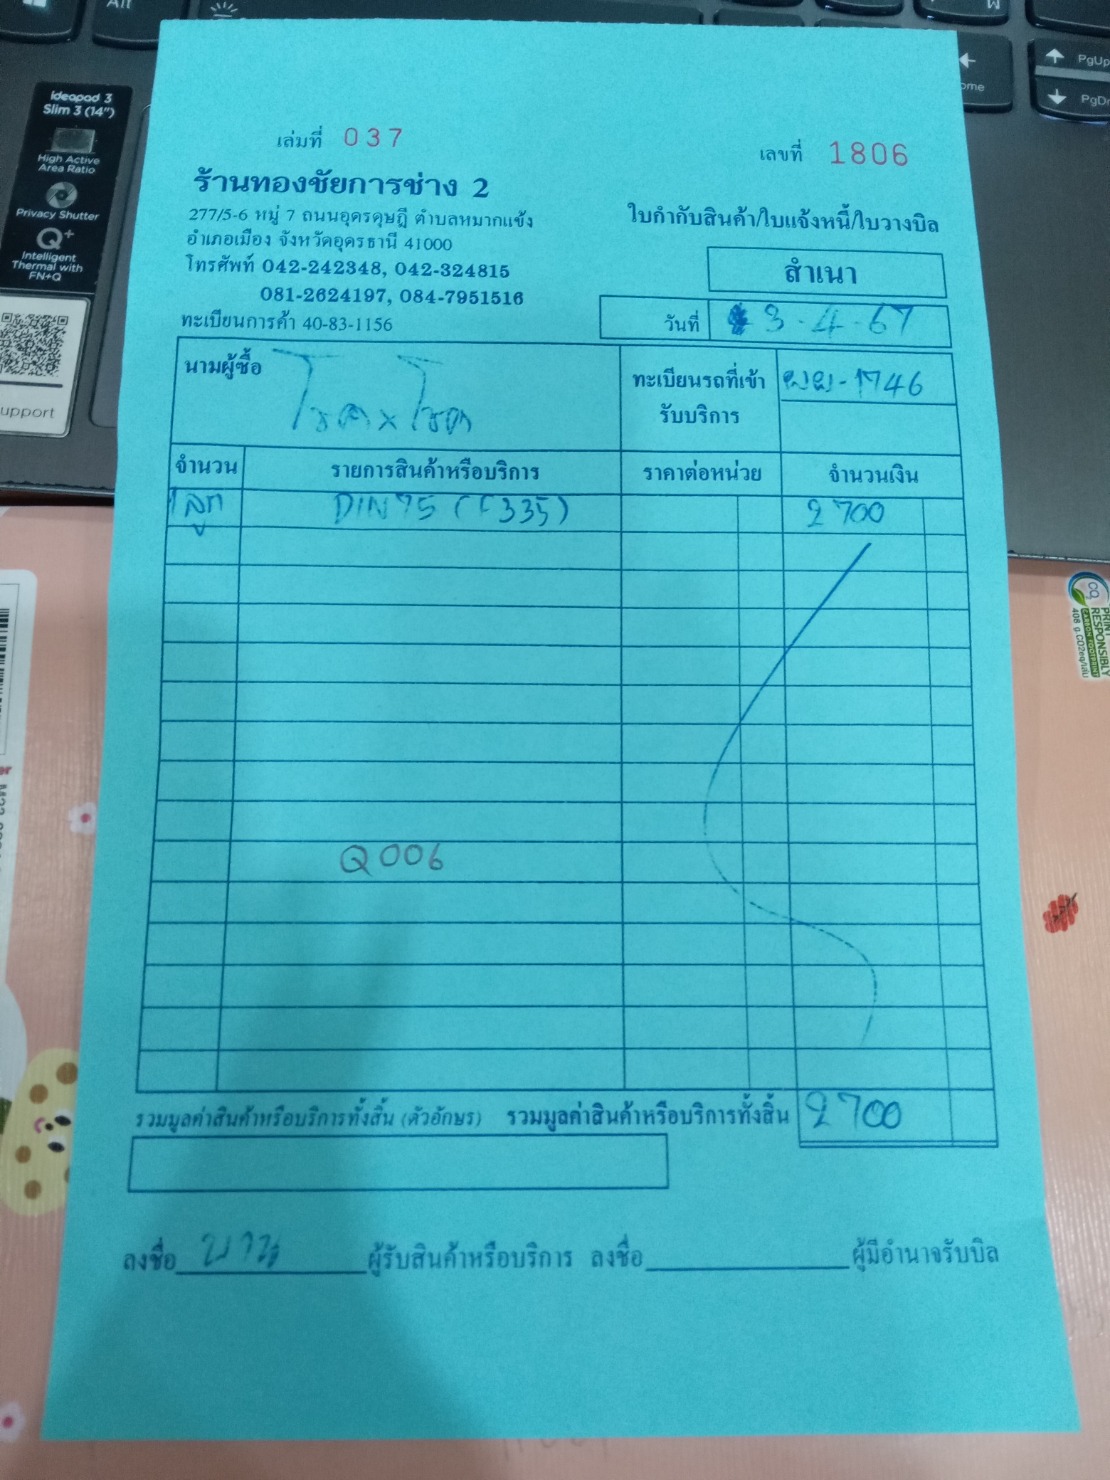 Alt
ideapad 3
Slim 3 (14")
High Active
Area Ratio
Privacy Shutter
Q+
Intelligent
Thermal with
FN+Q
upport
PgUp
ome
PgDn
เล่มที่ 037
เลขที่ 1806
ร้านทองชัยการช่าง 2
277/5-6 หมู่ 7 ถนนอุดรดุษฎี ตำบลหมากแข้ง
อำเภอเมือง จังหวัดอุดรธานี 41000
โทรศัพท์ 042-242348, 042-324815
081-2624197, 084-7951516
ทะเบียนการค้า 40-83-1156
ใบกำกับสินค้า/ใบแจ้งหนี้/ใบวางบิล
สำเนา
วันที่ 3-4-67
นามผู้ซื้อ โชค x โชค
ทะเบียนรถที่เข้า
รับบริการ
ผผ-1746
จำนวน รายการสินค้าหรือบริการ ราคาต่อหน่วย จำนวนเงิน
1 ลูก DIN 75 (F335) 2700
Q006
รวมมูลค่าสินค้าหรือบริการทั้งสิ้น (ตัวอักษร) รวมมูลค่าสินค้าหรือบริการทั้งสิ้น 2700
ลงชื่อ ผู้รับสินค้าหรือบริการ ลงชื่อ ผู้มีอำนาจรับบิล
RESPONSIBLY